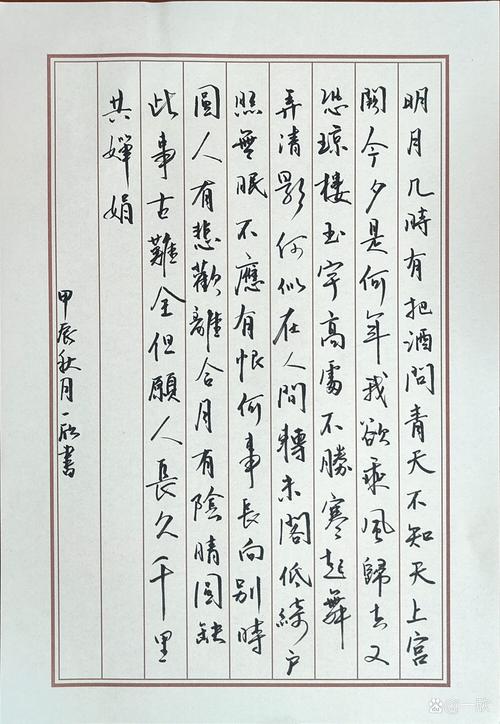 明月几時有把酒問青天不知天上宮
闕今夕是何年我欲乘風歸去又
恐琼樓玉宇高處不勝寒起舞
弄清影何似在人間轉朱閣低綺户
照無眠不應有恨何事長向別時
圓人有悲歡離合月有陰晴圓缺
此事古難全但願人長久千里
共嬋娟
甲辰秋月一書